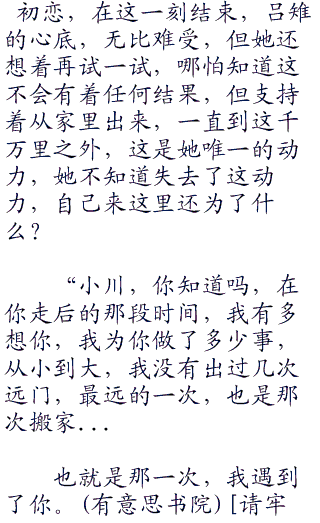 初恋，在这一刻结束，吕雉
的心底，无比难受，但她还
想着再试一试，哪怕知道这
不会有着任何结果，但支持
着从家里出来，一直到这千
万里之外，这是她唯一的动
力，她不知道失去了这动
力，自己来这里还为了什
么？
“小川，你知道吗，在
你走后的那段时间，我有多
想你，我为你做了多少事，
从小到大，我没有出过几次
远门，最远的一次，也是那
次搬家...
也就是那一次，我遇到
了你。(有意思书院)[请牢